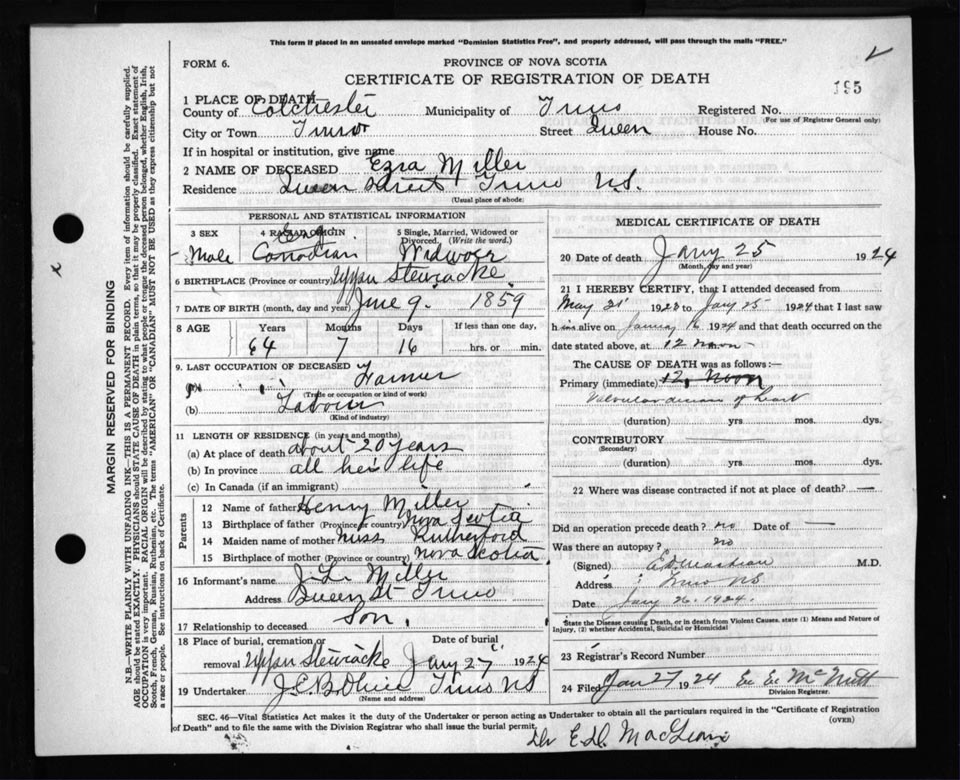 This form if placed in an unsealed envelope marked "Dominion Statistics Free", and properly addressed, will pass through the mails "FREE."
FORM 6.
PROVINCE OF NOVA SCOTIA
CERTIFICATE OF REGISTRATION OF DEATH
195
1 PLACE OF DEATH
County of Colchester Municipality of Truro Registered No.
(For use of Registrar General only)
City or Town Truro Street Queen House No.
If in hospital or institution, give name
2 NAME OF DECEASED Ezra Miller
Residence Queen Street Truro N.S.
(Usual place of abode)
MARGIN RESERVED FOR BINDING
N.B.—WRITE PLAINLY WITH UNFADING INK—THIS IS A PERMANENT RECORD. Every item of information should be carefully supplied.
AGE should be stated EXACTLY. PHYSICIANS should STATE CAUSE OF DEATH in plain terms, so that it may be properly classified. Exact statement of
OCCUPATION is very important. RACIAL ORIGIN will be described by stating to what people or tongue the deceased person belonged, whether English, Irish,
Scotch, French, German, Russian, Ruthenian, etc. The terms "AMERICAN" OR "CANADIAN" MUST NOT BE USED as they express citizenship but not
a race or people. See instructions on back of Certificate.
PERSONAL AND STATISTICAL INFORMATION
3 SEX
4 RACIAL ORIGIN
5 Single, Married, Widowed or
Divorced. (Write the word.)
Eng.
Male Canadian Widwoer
6 BIRTHPLACE (Province or country) Uppar Stewiacke
7 DATE OF BIRTH (month, day and year) June 9. 1859
8 AGE Years Months Days If less than one day,
64 7 16 hrs. or min.
9. LAST OCCUPATION OF DECEASED Farmer
(Trade or occupation or kind of work)
(b) Labour
(Kind of industry)
11 LENGTH OF RESIDENCE (in years and months)
(a) At place of death about 20 years
(b) In province all his life
(c) In Canada (if an immigrant)
Parents
12 Name of father Henry Miller
13 Birthplace of father (Province or country) Nova Scotia
14 Maiden name of mother Miss Rutherford
15 Birthplace of mother (Province or country) Nova Scotia
16 Informant's name Miller
Address Queen St Truro
17 Relationship to deceased Son.
18 Place of burial, cremation or Date of burial
removal Uppar Stewiacke Jany 27 1924
19 Undertaker Truro NS
(Name and address)
MEDICAL CERTIFICATE OF DEATH
20 Date of death Jany 25 1924
(Month, day and year)
21 I HEREBY CERTIFY, that I attended deceased from
May 21 1923 to Jany 25 1924 that I last saw
him alive on January 16 1924 and that death occurred on the
date stated above, at 12 noon
The CAUSE OF DEATH was as follows:—
Primary (immediate) 12 Noon
Valvular disease of heart
(duration) yrs. mos. dys.
CONTRIBUTORY
(Secondary)
(duration) yrs. mos. dys.
22 Where was disease contracted if not at place of death?—
Did an operation precede death? no Date of —
Was there an autopsy? no
(Signed) M.D.
Address Truro NS
Date Jany 26. 1924.
State the Disease causing Death, or in death from Violent Causes, state (1) Means and Nature of
Injury, (2) whether Accidental, Suicidal or Homicidal
23 Registrar's Record Number
24 Filed Jan 27 1924
Division Registrar.
SEC. 46—Vital Statistics Act makes it the duty of the Undertaker or person acting as Undertaker to obtain all the particulars required in the "Certificate of Registration
of Death" and to file the same with the Division Registrar who shall issue the burial permit.
(OVER)
Dr E.D. MacLean